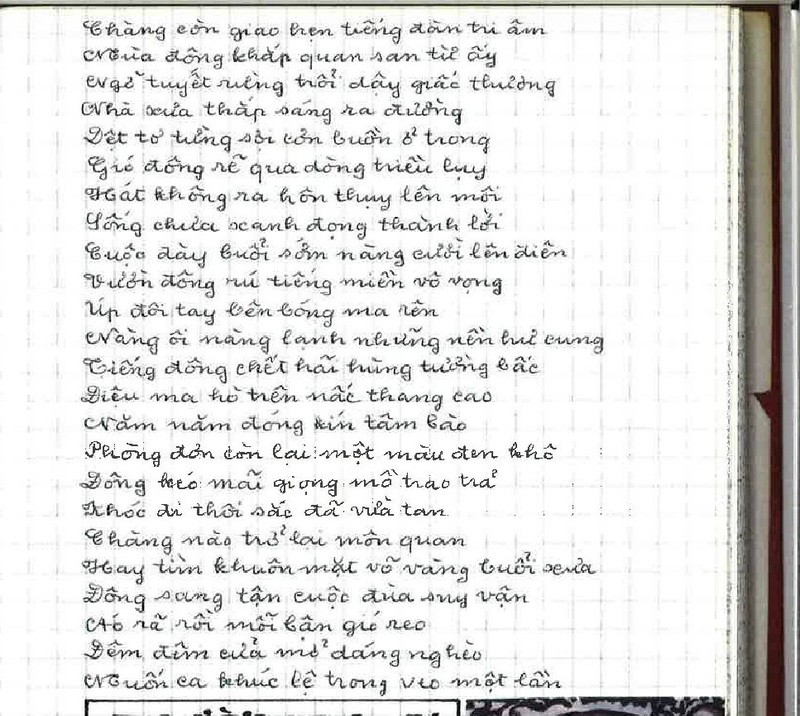 Chàng còn giao hẹn tiếng đàn tri âm
Mùa đông khắp quan san từ ấy
Ngỡ tuyết rừng trỗi dậy giấc thương
Nhà xưa thắp sáng ra đường
Dệt tơ từng sợi cơn buồn ở trong
Gió đông rẽ qua dòng triều lụy
Hát không ra hồn thụy lên môi
Sống chưa xanh đọng thành lời
Cuộc đày buổi sớm nàng cười lên điên
Vườn đông rú tiếng miền vô vọng
Úp đôi tay bên bóng ma rên
Nàng ôi nàng lạnh những nền hư cung
Tiếng đông chết hãi hùng tường bấc
Điệu ma hò trên nấc thang cao
Năm năm đóng kín tâm bào
Phòng đơn còn lại một màu đen khô
Đông kéo mãi giọng mồ trao trả
Khóc đi thôi sắc đã vừa tan
Chàng nào trở lại môn quan
Hay tìm khuôn mặt võ vàng buổi xưa
Đông sang tận cuộc đùa suy vận
Áo rã rồi mỗi bận gió reo
Đêm đêm cửa mở dáng nghèo
Muốn ca khúc lệ trong veo một lần